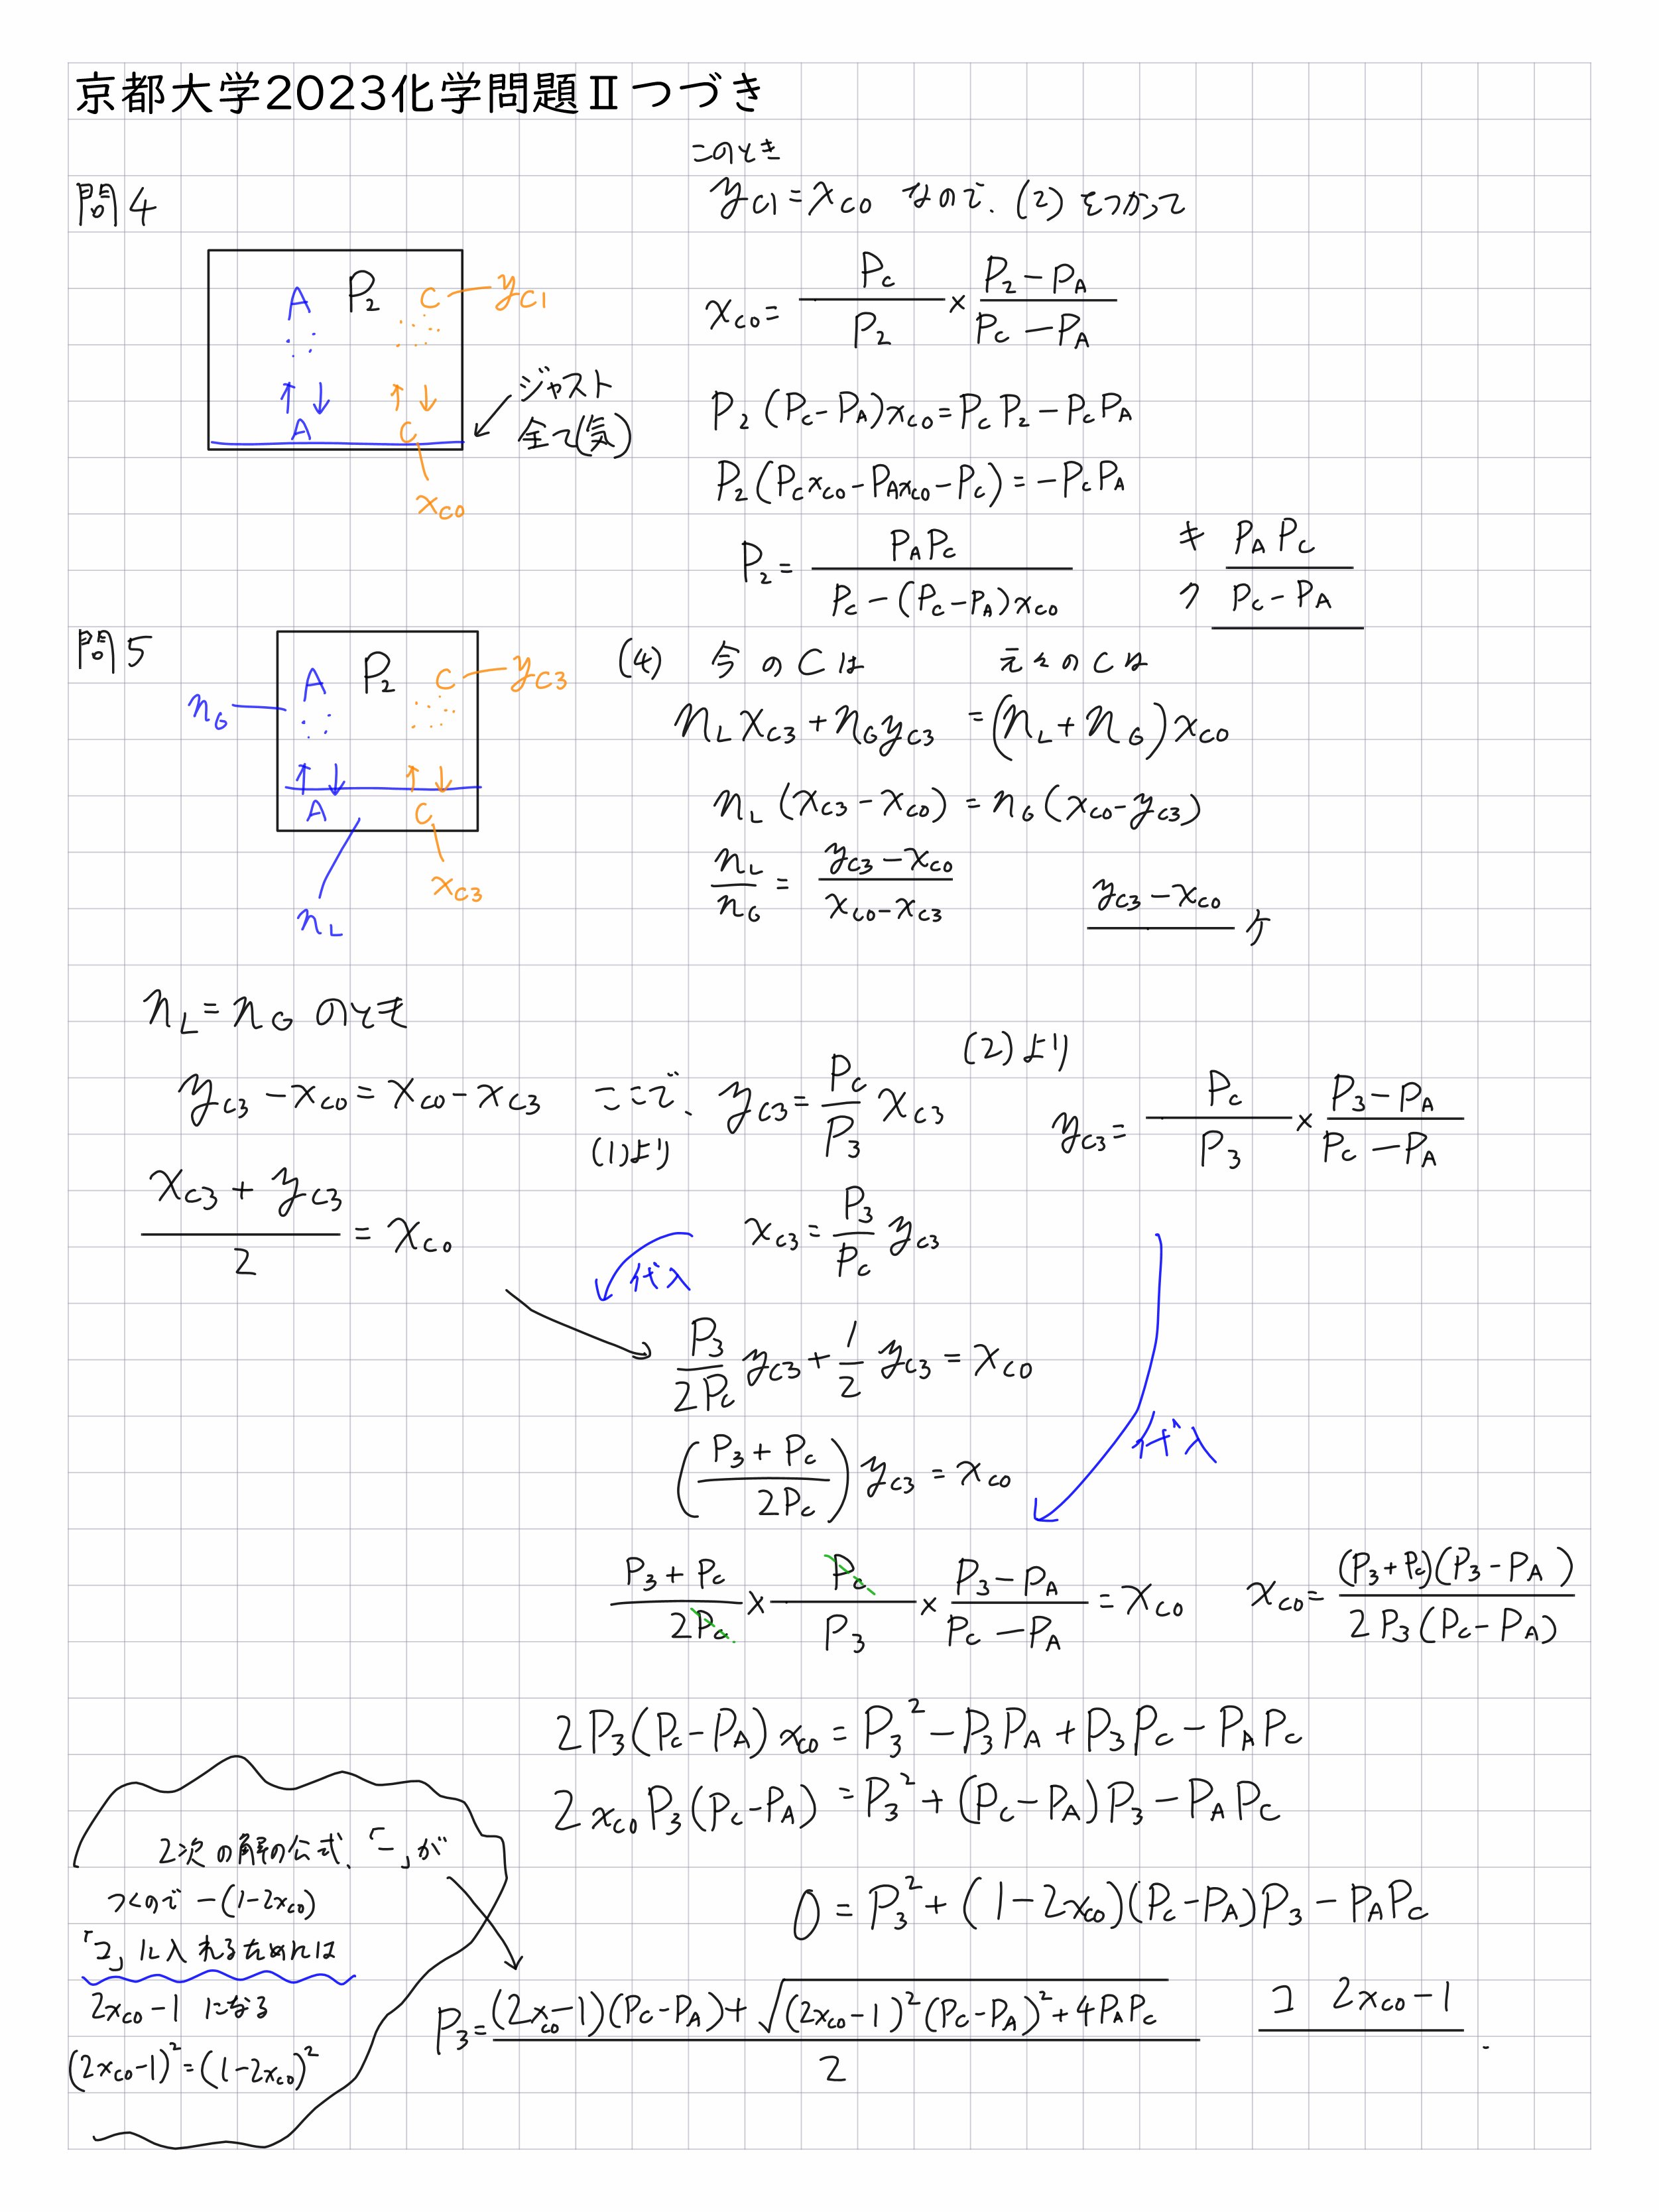 京都大学2023化学問題Ⅱつづき
問4
A P₂ C y_C1
A C
x_C0
ジャスト
全て(気)
このとき
y_C1 = x_C0 なので、(2)をつかって
x_C0 = P_C/P₂ × (P₂ - P_A)/(P_C - P_A)
P₂(P_C - P_A)x_C0 = P_C P₂ - P_C P_A
P₂(P_C x_C0 - P_A x_C0 - P_C) = -P_C P_A
P₂ = P_A P_C/(P_C - (P_C - P_A)x_C0)
キ P_A P_C
ク P_C - P_A
問5
A P₂ C y_C3
n_G
A C
x_C3
n_L
(4) 今のCは 元々のCは
n_L x_C3 + n_G y_C3 = (n_L + n_G)x_C0
n_L(x_C3 - x_C0) = n_G(x_C0 - y_C3)
n_L/n_G = (y_C3 - x_C0)/(x_C0 - x_C3)
y_C3 - x_C0 ケ
n_L = n_G のとき
y_C3 - x_C0 = x_C0 - x_C3
(x_C3 + y_C3)/2 = x_C0
ここで、 y_C3 = P_C/P₃ x_C3
(1)より
x_C3 = P₃/P_C y_C3
(2)より
y_C3 = P_C/P₃ × (P₃ - P_A)/(P_C - P_A)
代入
P₃/2P_C y_C3 + 1/2 y_C3 = x_C0
((P₃ + P_C)/2P_C) y_C3 = x_C0
代入
(P₃ + P_C)/2P_C × P_C/P₃ × (P₃ - P_A)/(P_C - P_A) = x_C0
x_C0 = (P₃ + P_C)(P₃ - P_A)/2P₃(P_C - P_A)
2P₃(P_C - P_A)x_C0 = P₃² - P₃P_A + P₃P_C - P_A P_C
2x_C0 P₃(P_C - P_A) = P₃² + (P_C - P_A)P₃ - P_A P_C
0 = P₃² + (1 - 2x_C0)(P_C - P_A)P₃ - P_A P_C
P₃ = ((2x_C0 - 1)(P_C - P_A) + √((2x_C0 - 1)²(P_C - P_A)² + 4P_A P_C))/2
コ 2x_C0 - 1
2次の解の公式、「-」が
つくので -(1-2x_C0)
「コ」に入れるためには
2x_C0 - 1 になる
(2x_C0 - 1)² = (1 - 2x_C0)²